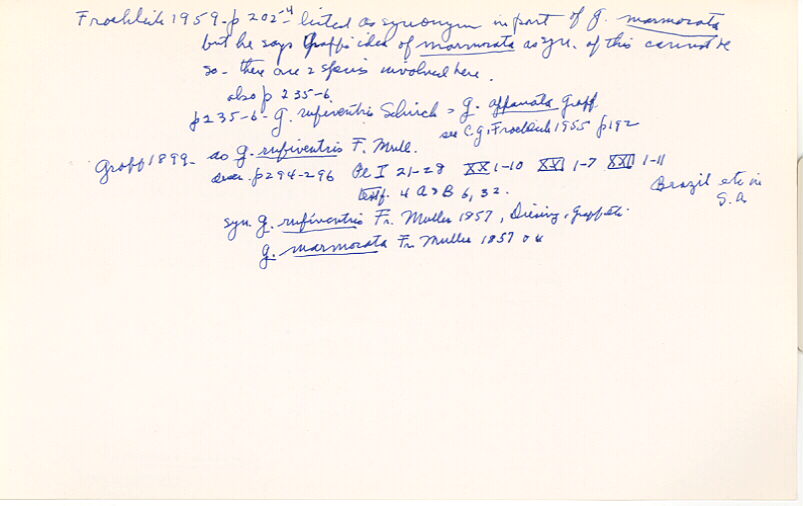 Froehlich 1959 - p 202-4 listed as synonym in part of G. marmorata
but he says Graff's idea of marmorata as syn. of this cannot be
so - there are 2 species involved here.
also p 235-6
p 235-6 - G. rufiventris Schirch = G. applanata Graff
see C.G. Froehlich 1955 p 192
Graff 1899 - as G. rufiventris F. Mull.
desc. p 294-296 Pl I 21-28 XX 1-10 XXI 1-7 XXII 1-11
Textf. 4 A & B 6, 32.
Brazil etc in
S. A.
syn. G. rufiventris Fr. Muller 1857, Diesing, Graff etc.
G. marmorata Fr. Muller 1857